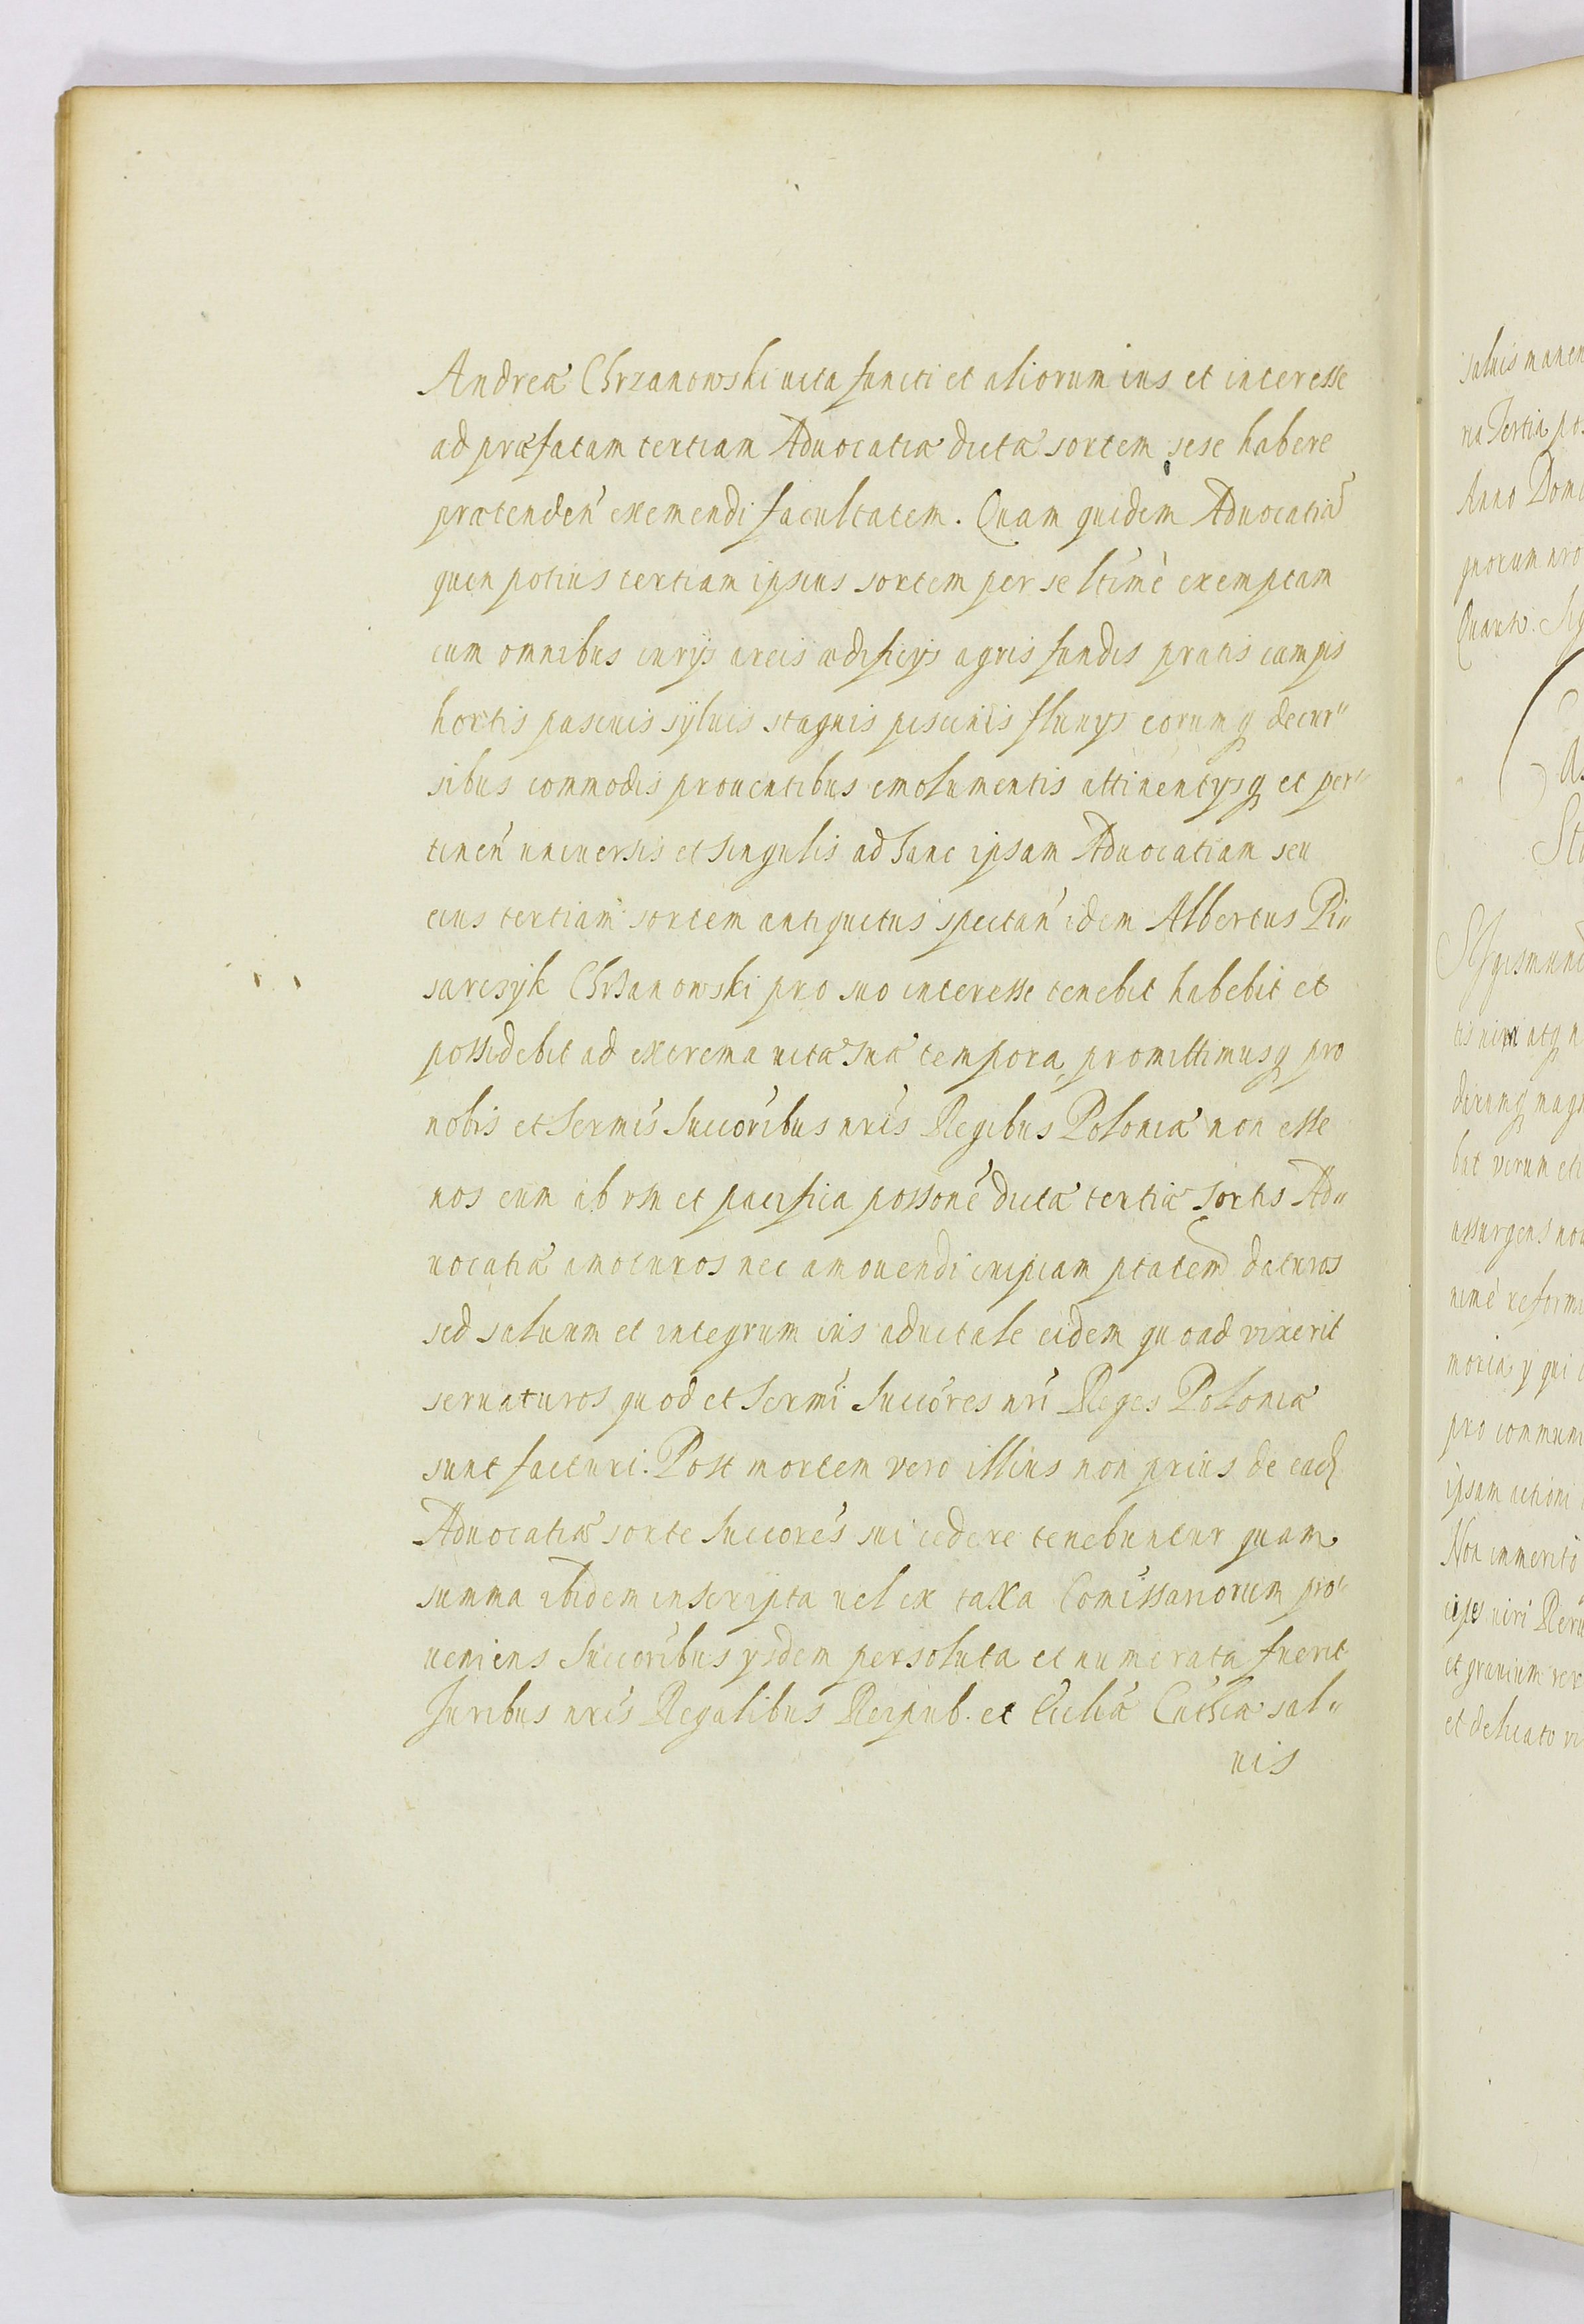 Andreæ Chrzanowski uita functi et aliorum ius et interesse
ad præfatam tertiam Aduocatiæ dictæ sortem sese habere
prætendeń exemendi facultatem. Quam quidem Aduocatiā
quin potius tertiam ipsius sortem per se ltime exemptam
cum omnibus iurijs areis ædificijs agris fundis pratis campis
hortis pascuis syluis stagnis piscinis fluuijs eorumq decur"
sibus commodis prouentibus emolumentis attinentijsq et per"
tineń uniuersis et singulis ad hanc ipsam Aduocatiam seu
eius tertiam sortem antiquitus spectań idem Albertus Pi"
sarczyk Chrzanowski pro suo interesse tenebit habebit et
possidebit ad extrema uitæ suæ tempora, promittimusq pro
nobis et Sermis Succoribus nris Regibus Poloniæ non esse
nos eum ab vsu et pacifica possone dictæ tertiæ sortis Ad"
uocatiæ amoturos nec amouendi cuipiam ptatem daturos
sed saluum et integrum ius aduitale eidem quoad vixerit
seruaturos quod et Sermi Succores nri Reges Poloniæ
sunt facturi. Post mortem vero illius non prius de ead
Aduocatiæ sorte Succores sui cedere tenebuntur quam
summa ibidem inscripta uel ex taxa Comissariorum pro"
ueniens Succoribus ijsdem persoluta et numerata fuerit
Juribus nris Regalibus Reipub. et Ecclia Cathca sal"
uis
saluis manen
ria Tertia pos
Anno Domi
gnorum nro
Quarto.
Sigismund
assurgens
pro communi
ipsam actioni
Non immerito